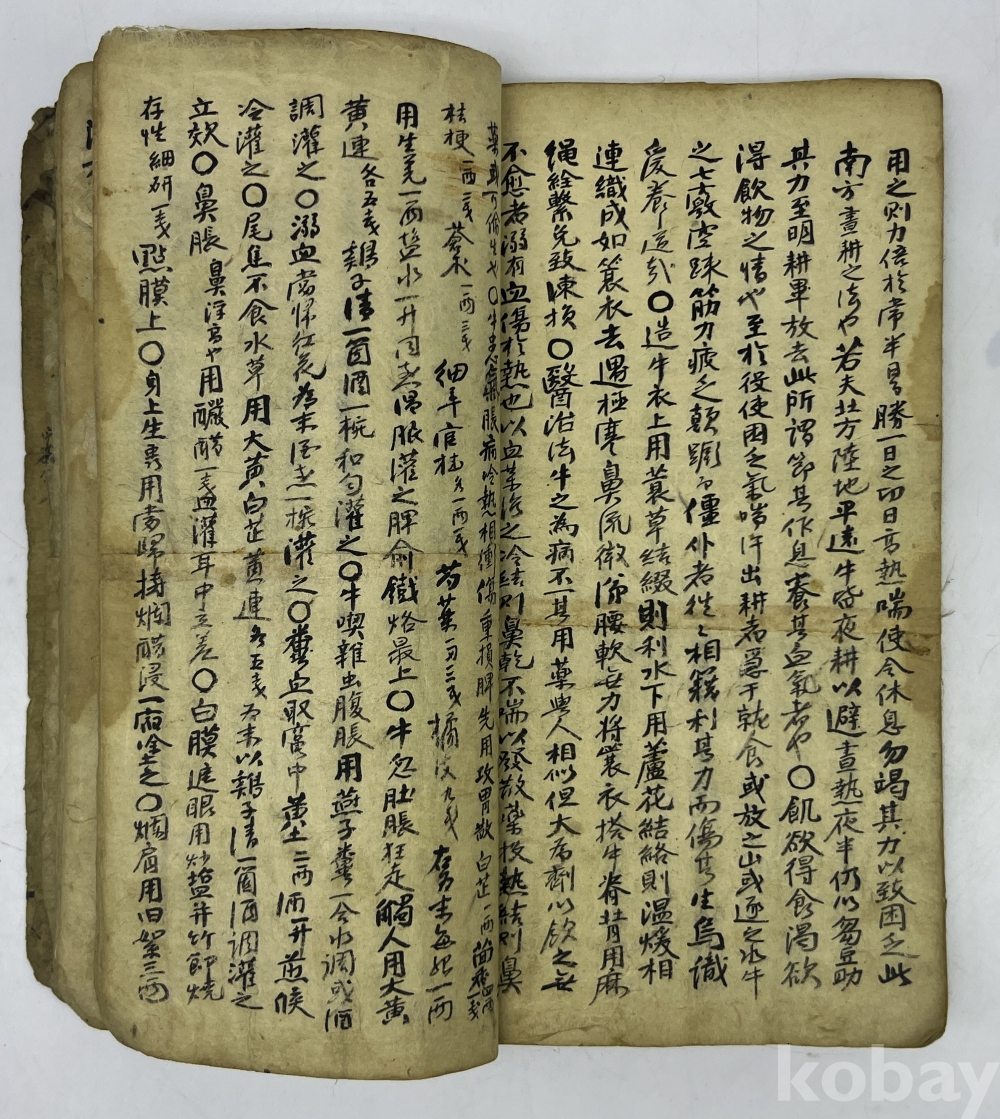 用之則力倍於常半日勝一日之功日高熱喘使令休息勿竭其力以致困乏此
南方晝耕之法也若夫北方陸地平遠牛皆夜耕以避晝熱夜半仍以芻豆助
其力至明耕畢放去此所謂節其作息養其血氣者也〇飢欲得食渴欲
得飲物之情也至於役使困乏氣喘汗出耕者急于就食或放之山或逐之水牛
之七竅空疎筋力疲乏顛蹶而僵仆者往往相籍利其力而傷其生烏識
愛養之道哉〇造牛衣上用蓑草結綴則利水下用蘆花結絡則温煖相
連織成如蓑衣去遇極寒鼻流微涕腰軟無力將蓑衣搭牛脊背用麻
繩絟繫免致凍損〇醫治法牛之為病不一其用藥與人相似但大為劑以飲之無
不愈者溺有血傷於熱也以血藥治之冷結則鼻乾不喘以發散藥投熱結則鼻
藥 〇牛 脹病冷熱相衝傷重損脾先用攻胃散白芷一兩茴香
桔梗一兩二戔 蒼朮一兩三戔 細辛 官桂各一兩一戔 芍藥一兩三戔 橘皮九戔 右為末每服一兩
用生姜一兩塩水一升同煎温服灌之脾俞鐵烙最上〇牛忽肚脹狂走觸人用大黃
黃連各五戔鷄子清一箇酒一椀和勻灌之〇牛喫雜虫腹脹用燕子糞一合水調或酒
調灌之〇溺血當歸紅花為末酒煎一椀灌之〇糞血取竈中黃土二兩酒一升煎候
冷灌之〇尾焦不食水草用大黃白芷黃連各五戔為末以鷄子清一箇酒調灌之
立效〇鼻脹鼻浮高也用釅醋一盞灌耳中立差〇白膜遮眼用炒塩幷竹節燒
存性細研一戔點膜上〇身上生 用當歸搗爛醋浸一宿塗之〇爛肩用旧絮三兩